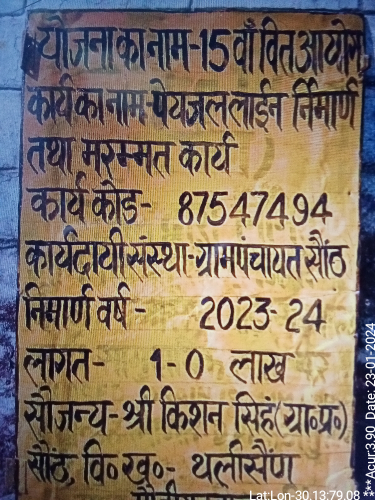 योजना का नाम-15 वाँ वित आयोग
कार्य का नाम-पेयजल लाईन र्निमार्ण
तथा मरम्मत कार्य
कार्य कोड- 87547494
कार्यदायी संस्था-ग्राम पंचायत सौंठ
निमार्ण वर्ष - 2023-24
लागत- 1-0 लाख
सौजन्य-श्री किशन सिहं(ग्रा०प्र०)
सौंठ, वि० ख०- थलीसैंण
Lat:Lon-30,13:79.08 ***Acur:3.90 Date: 23-01-2024